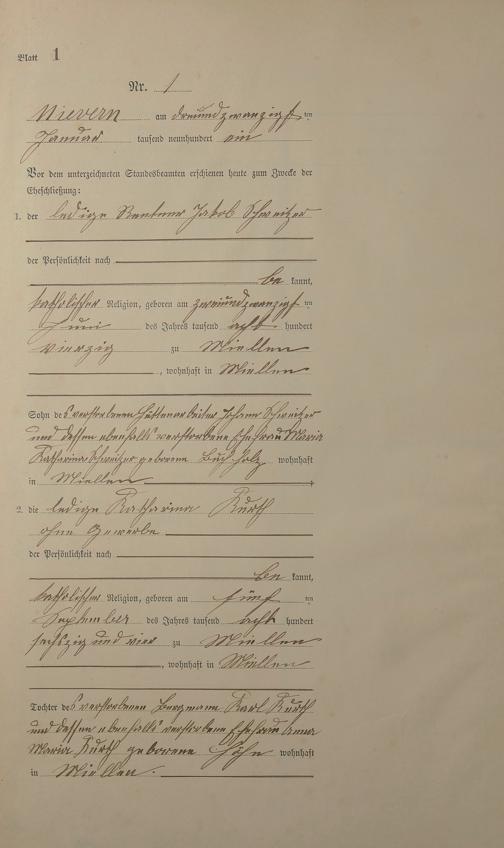 Blatt 1
Nr. 1
Nievern am dreiundzwanzigsten
Januar tausend neunhundert ein
Vor dem unterzeichneten Standesbeamten erschienen heute zum Zwecke der
Eheschließung:
1. der ledige Rentner Jakob Schweitzer
der Persönlichkeit nach
be kannt,
katholischer Religion, geboren am zweiundzwanzigsten
Juni des Jahres tausend acht hundert
vierzig zu Miellen
, wohnhaft in Miellen
Sohn des verstorbenen Hüttenarbeiter Johann Schweitzer
und dessen ebenfalls verstorbene Ehefrau Maria
Katharina Schweitzer geborene Buchholz wohnhaft
in Miellen
2. die ledige Katharina Kurth
ohne Gewerbe
der Persönlichkeit nach
be kannt,
katholischer Religion, geboren am fünf ten
September des Jahres tausend acht hundert
sechszig und vier zu Miellen
, wohnhaft in Miellen
Tochter des verstorbenen Bergmann Karl Kurth
und dessen ebenfalls verstorbene Ehefrau Anna
Maria Kurth geborene Höhn wohnhaft
in Miellen.